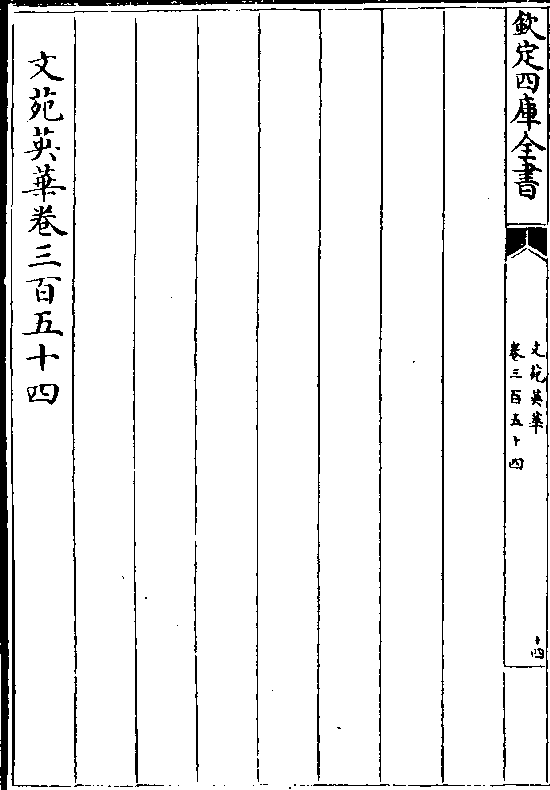 欽定四庫全書
文苑英華
卷三百五十四
十四
文苑英華卷三百五十四